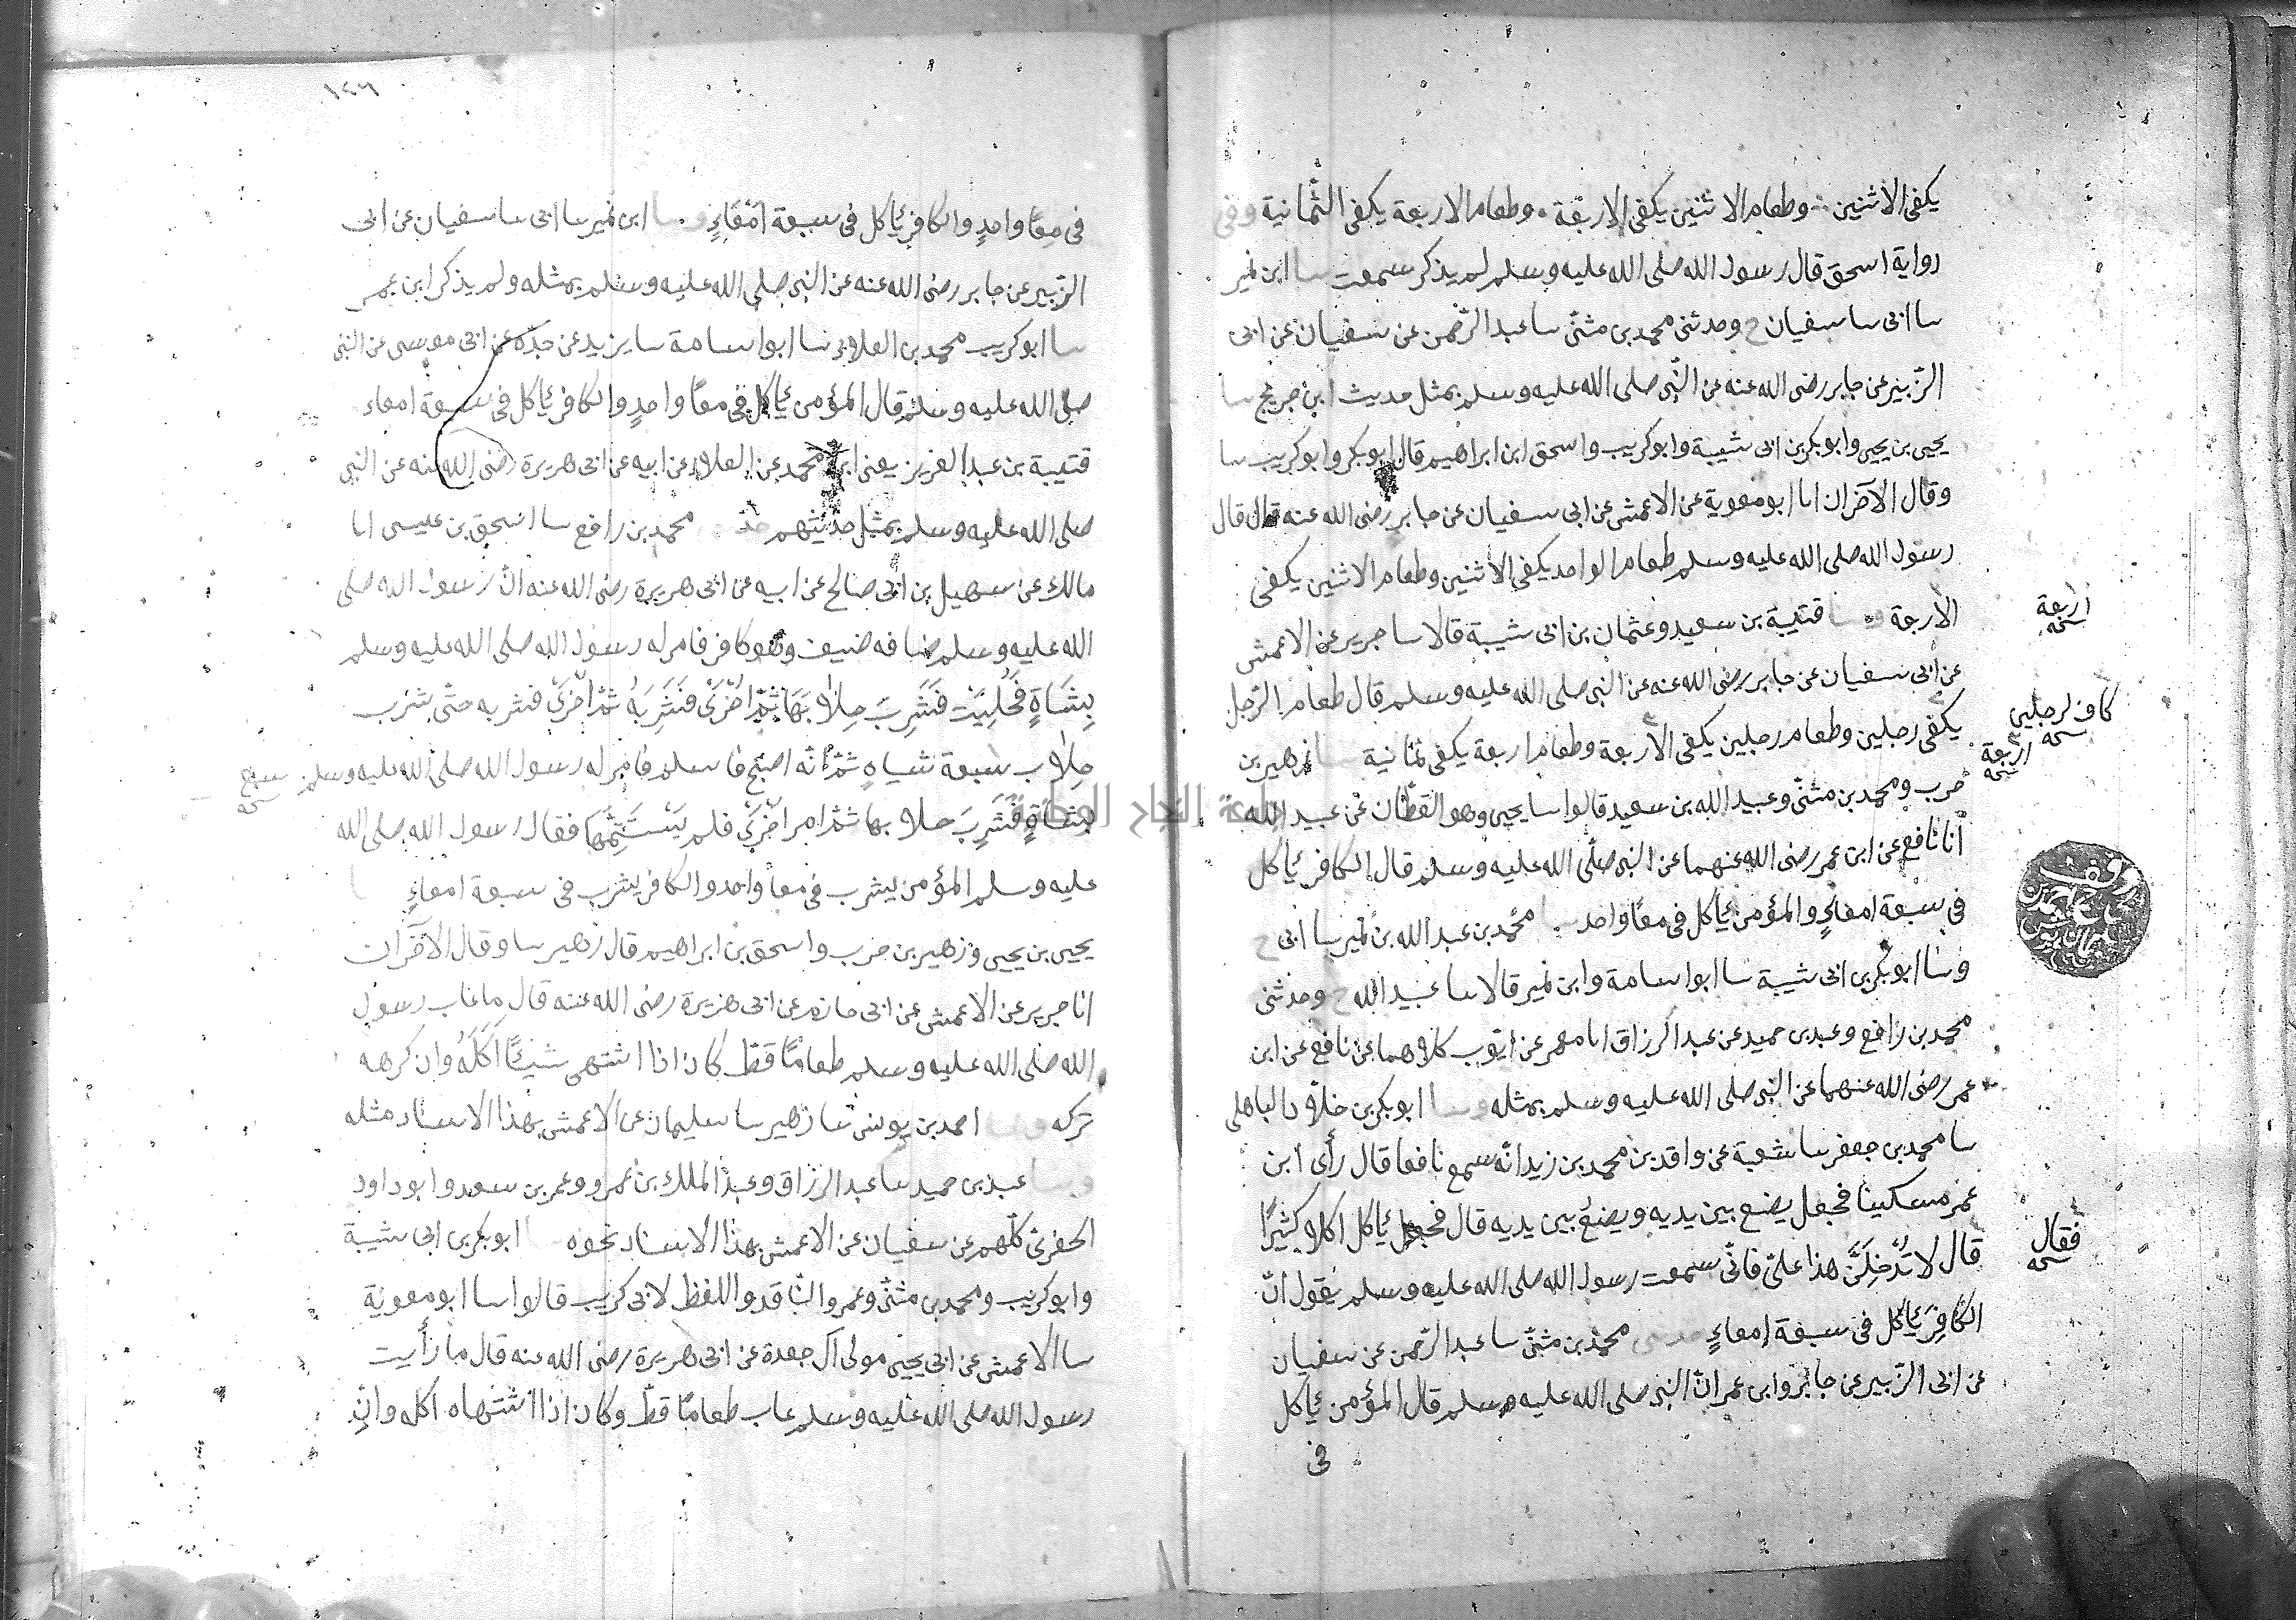 يكفى الاثنين وطعام الاثنين يكفى الاربعة وطعام الاربعة يكفى الثمانية وفى
رواية اسحق قال رسول الله صلى الله عليه وسلم لم يذكر سمعت سا ابن نمير
سا ابى سا سفيان ح وحدثنى محمد بن مثنى سا عبد الرحمن عن سفيان عن ابى
الزبير عن جابر رضى الله عنه عن النبى صلى الله عليه وسلم بمثل حديث ابن جريج سا
يحيى بن يحيى وابو بكر بن ابى شيبة وابو كريب واسحق ابن ابراهيم قال ابو بكر وابو كريب سا
وقال الآخران انا ابو معوية عن الاعمش عن ابى سفيان عن جابر رضى الله عنه قال قال
رسول الله صلى الله عليه وسلم طعام الواحد يكفى الاثنين وطعام الاثنين يكفى
الاربعة وسا قتيبة بن سعيد وعثمان بن ابى شيبة قالا سا جرير عن الاعمش
اربعة
نسخه
عن ابى سفيان عن جابر رضى الله عنه عن النبى صلى الله عليه وسلم قال طعام الرجل
يكفى رجلين وطعام رجلين يكفى الاربعة وطعام اربعة يكفى ثمانية سا زهير بن
كاف لرجلين
نسخه
اربعة
نسخه
حرب ومحمد بن مثنى وعبيد الله بن سعيد قالوا سا يحيى وهو القطان عن عبيد الله
انا نافع عن ابن عمر رضى الله عنهما عن النبى صلى الله عليه وسلم قال الكافر يأكل
فى سبعة امعاءٍ والمؤمن يأكل فى معًا واحد سا محمد بن عبد الله بن نمير سا ابى ح
وسا ابو بكر بن ابى شيبة سا ابو اسامة وابن نمير قالا سا عبيد الله ح وحدثنى
محمد بن رافع وعبد بن حميد عن عبد الرزاق انا معمر عن ايوب كلاهما عن نافع عن ابن
عمر رضى الله عنهما عن النبى صلى الله عليه وسلم بمثله وسا ابو بكر بن خلاد الباهلى
سا محمد بن جعفر سا شعبة عن واقد بن محمد بن زيد انّه سمع نافعا قال رأى ابن
عمر مسكينا فجعل يضع بين يديه ويضع بين يديه قال فجعل يأكل اكلا كثيرًا
قال لا تُدْخِلَنَّ هذا علىّ فانّى سمعت رسول الله صلى الله عليه وسلم يقول انّ
فقال
نسخه
الكافِرَ يأكل فى سبعة امعاءٍ حدثنى محمد بن مثنى سا عبد الرحمن عن سفيان
عن ابى الزبير عن جابر وابن عمر انّ النبى صلى الله عليه وسلم قال المؤمن يأكل
فى
١٢٦
فى معًا واحدٍ والكافر يأكل فى سبعة امْعَاءٍ وسا ابن نمير سا ابى سا سفيان عن ابى
الزبير عن جابر رضى الله عنه عن النبى صلى الله عليه وسلم بمثله ولم يذكر ابن عمر
سا ابو كريب محمد بن العلاء سا ابو اسامة سا بريد عن جدّه عن ابى موسى عن النبى
صلى الله عليه وسلم قال المؤمن يأكل فى معًا واحدٍ والكافر يأكل فى سبعة امعاء
قتيبة بن عبد العزيز يعنى ابن محمد عن العلاء عن ابيه عن ابى هريرة رضى الله عنه عن النبى
صلى الله عليه وسلم بمثل حديثهم محمد بن رافع سا اسحق بن عيسى انا
مالك عن سهيل بن ابى صالح عن ابيه عن ابى هريرة رضى الله عنه انّ رسول الله صلى
الله عليه وسلم ضافه ضيف وهو كافر فامر له رسول الله صلى الله عليه وسلم
بِشَاةٍ فَحُلِبَتْ فَشَرِبَ حِلَابَهَا ثُمَّ اُخْرَىٰ فَشَرِبَهُ ثُمَّ اُخْرَىٰ فشربه حتّى شرب
حِلَاب سبعة شياهٍ ثمّ انّه اصبح فاسلم فامر له رسول الله صلى الله عليه وسلم
سبع
نسخه
بشاةٍ فَشَرِبَ حلابها ثمّ امر اُخْرَىٰ فلم يَسْتَتِمَّهَا فقال رسول الله صلى الله
عليه وسلم المؤمن يشرب فى معا واحد والكافر يشرب فى سبعة امعاءٍ
يحيى بن يحيى وزهير بن حرب واسحق بن ابراهيم قال زهير سا وقال الآخران
انا جرير عن الاعمش عن ابى حازم عن ابى هريرة رضى الله عنه قال ما عاب رسول
الله صلى الله عليه وسلم طعامًا قطّ كان اذا اشتهى شيئًا اَكَلَهُ وان كرهه
تركه وسا احمد بن يونس سا زهير سا سليمان عن الاعمش بهذا الاسناد مثله
وسا عبد بن حميد سا عبد الرزاق وعبد الملك بن عمرو وعمر بن سعد وابو داود
الحفرىّ كلّهم عن سفيان عن الاعمش بهذا الاسناد نحوه سا ابو بكر بن ابى شيبة
وابو كريب ومحمد بن مثنى وعمرو الناقد واللفظ لابى كريب قالوا سا ابو معوية
سا الاعمش عن ابى يحيى مولى آل جعدة عن ابى هريرة رضى الله عنه قال ما رأيت
رسول الله صلى الله عليه وسلم عاب طعامًا قطّ وكان اذا اشتهاه اكله وان